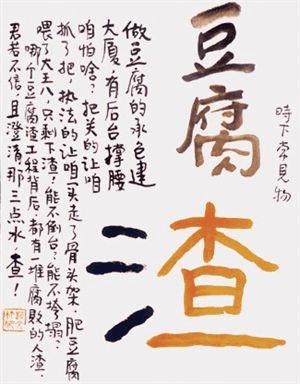 豆腐渣
時下常見物
做豆腐的承包建
大厦,有后台撑腰
咱怕啥?把关的让咱
抓了把,执法的让咱买走了骨头架,肥豆腐
喂了大王八,只剩下渣?能不倒台?能不垮塌?
哪个豆腐渣工程背后,都有一堆腐敗的人渣,
君若不信,且澄清那三点水,查!